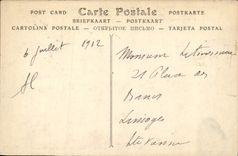 POST CARD Carte Postale POSTKARTE
BRIEFKAART — POSTKAART
CARTOLINA POSTALE — ОТКРЫТОЕ ПИСЬМО — TARJETA POSTAL
6 Juillet 1912
Monsieur
21 Place des
Bancs
Limoges
Hte Vienne